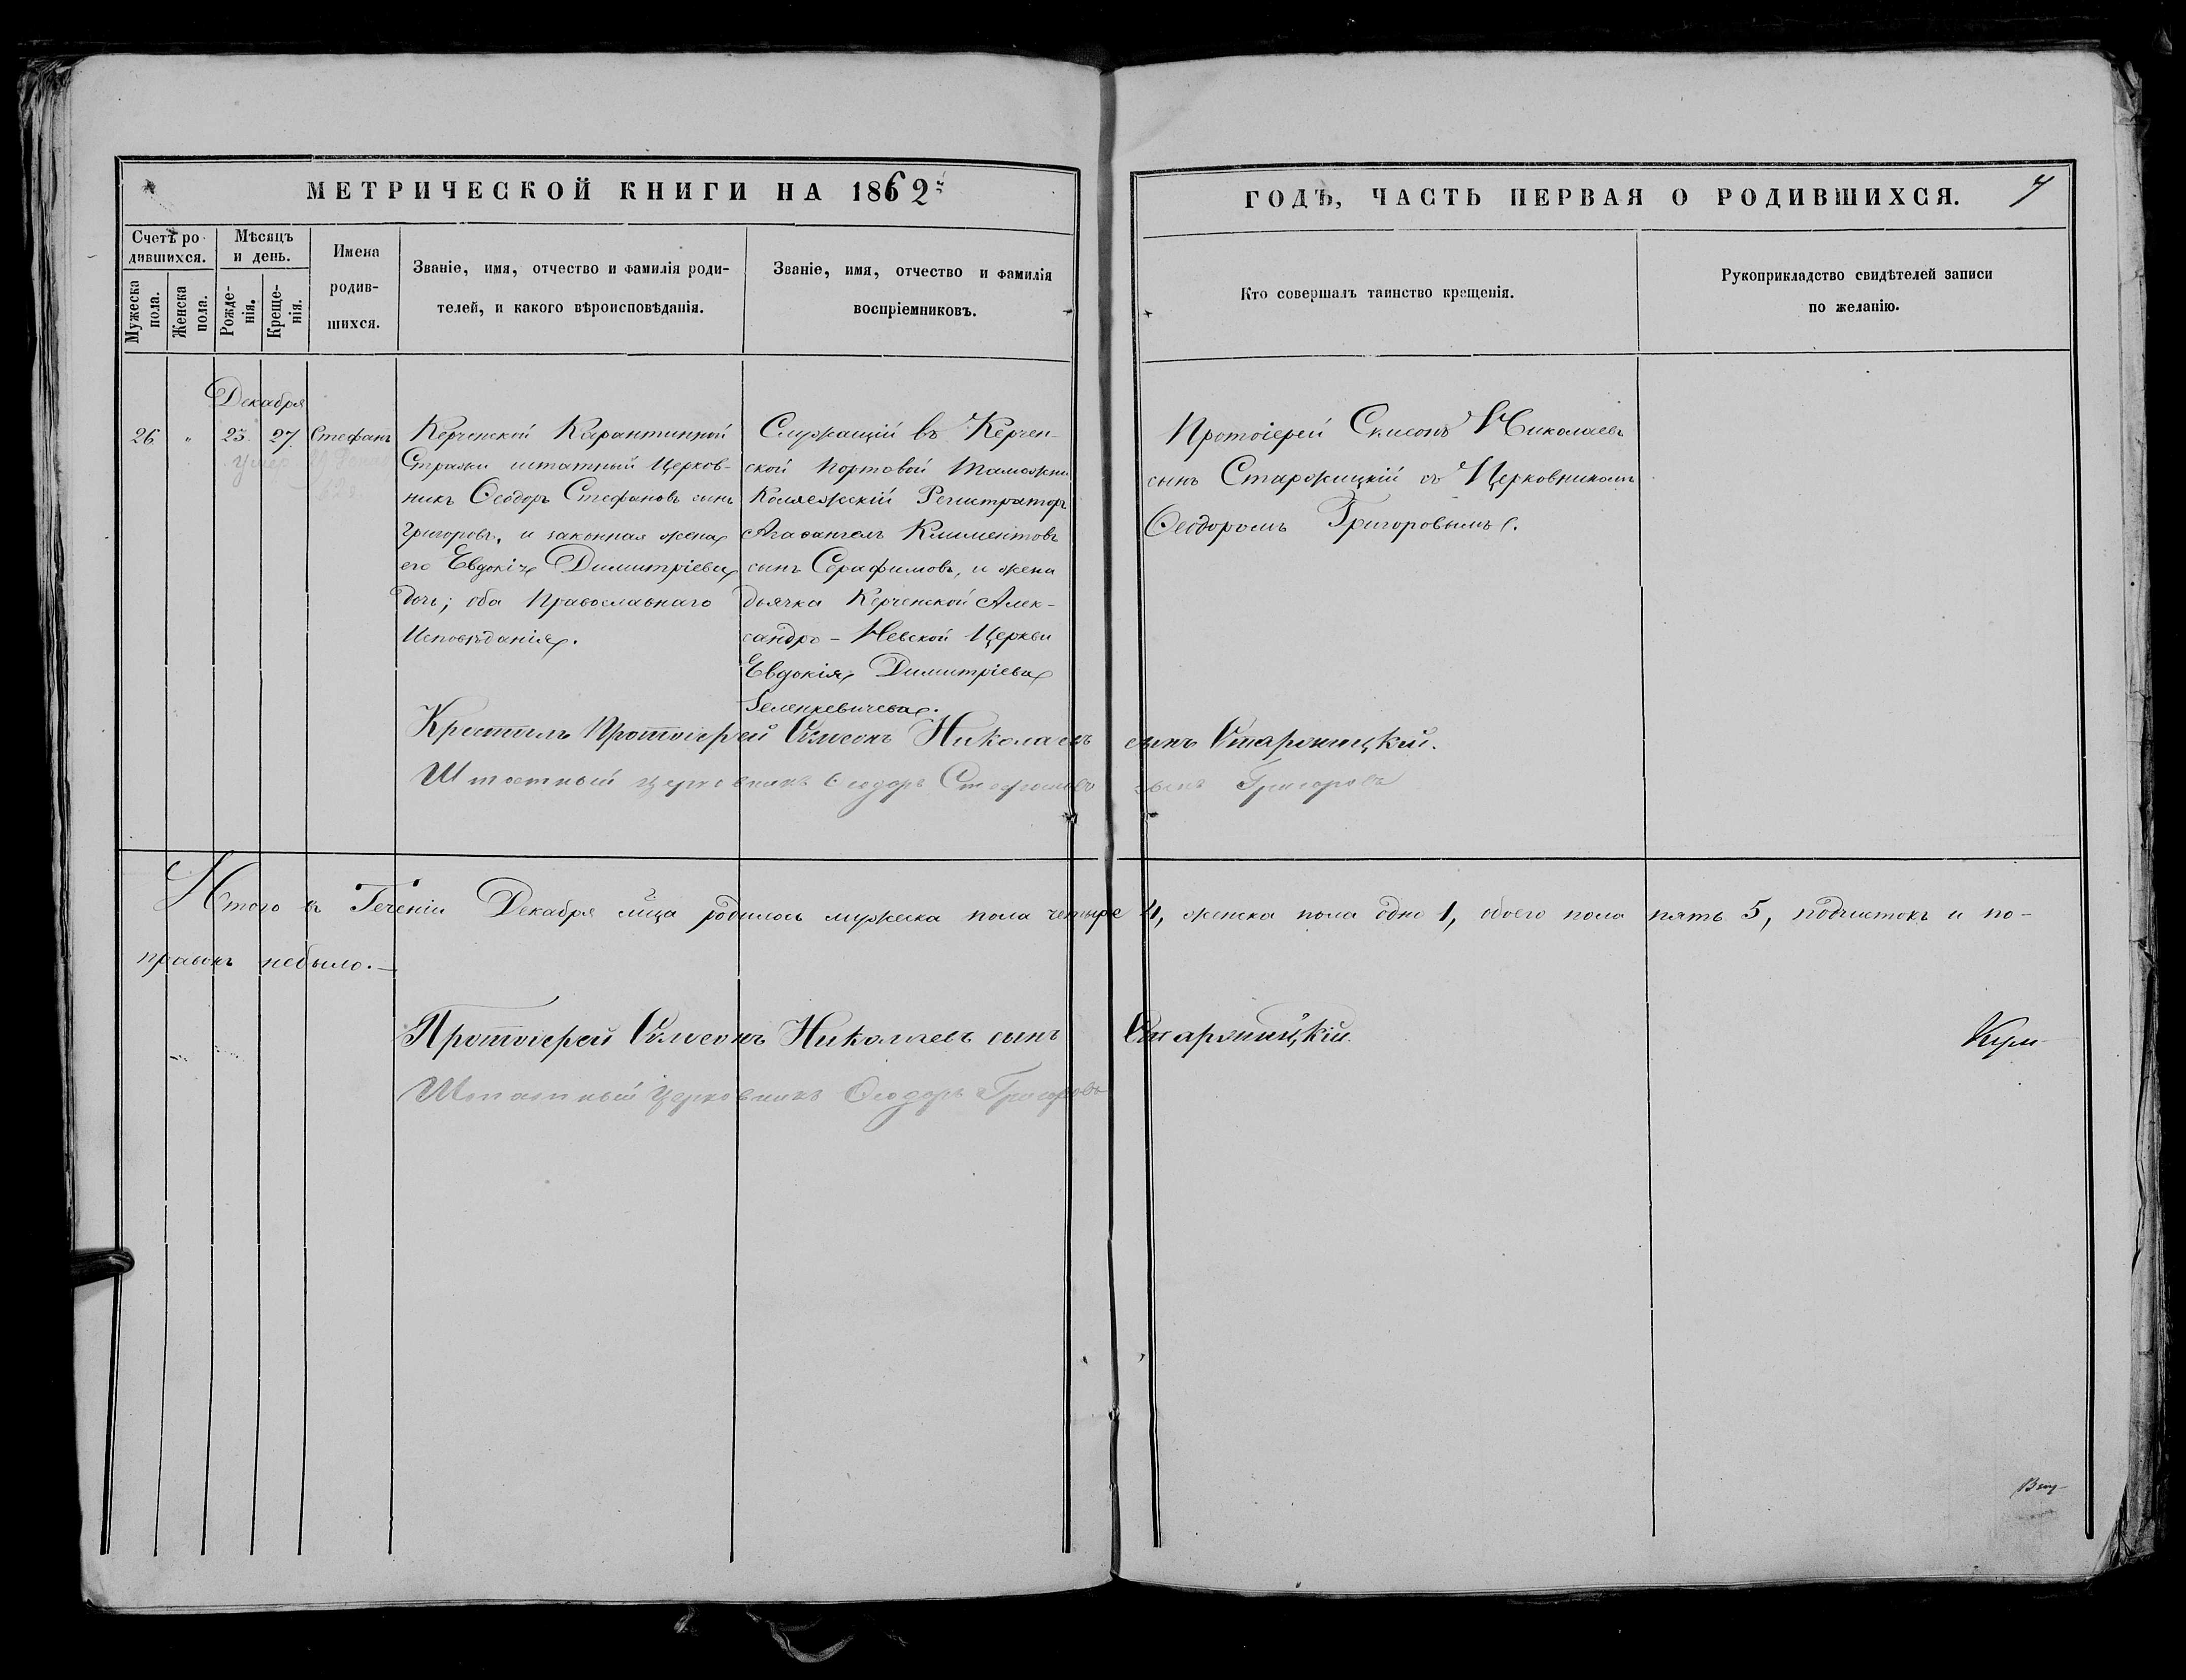 МЕТРИЧЕСКОЙ КНИГИ НА 1862й
ГОДЪ, ЧАСТЬ ПЕРВАЯ О РОДИВШИХСЯ.
Счетъ ро-
дившихся.
Мужеска пола.
Женска пола.
Мѣсяцъ
и день.
Рожде-
нія.
Креще-
нія.
Имена
родив-
шихся.
Званіе, имя, отчество и фамилія роди-
телей, и какого вѣроисповѣданія.
Званіе, имя, отчество и фамилія
воспріемниковъ.
Кто совершалъ таинство крещенія.
Рукоприкладство свидѣтелей записи
по желанію.
Декабря
26 " 23. 27. Стефанъ
умеръ
Керченской Карантинной
Стражи штатный Церков-
никъ Ѳеодоръ Стефановъ сынъ
Григоровъ, и законная жена
его Евдокія Димитріева
дочь; оба Православнаго
Исповѣданія.
Служащій въ Керчен-
ской Портовой Таможни
Коллежскій Регистраторъ
Агаѳангелъ Климентовъ
сынъ Серафимовъ, и жена
дьячка Керченской Алек-
сандро-Невской Церкви
Евдокія Димитріева
Зеленкевичева.
Протоіерей Симеонъ Николаевъ
сынъ Старожицкій съ Церковникомъ
Ѳеодоромъ Григоровымъ.
Крестилъ Протоіерей Симеонъ Николаевъ сынъ Старожицкій.
Штатный церковникъ Ѳеодоръ Стефановъ сынъ Григоровъ
Итого въ Теченіи Декабря мѣца родилось мужеска пола четыре 4, женска пола одно 1, обоего пола пять 5, подчистокъ и по-
правокъ небыло.—
Протоіерей Симеонъ Николаевъ сынъ Старожицкій.
Штатный церковникъ Ѳеодоръ Григоровъ